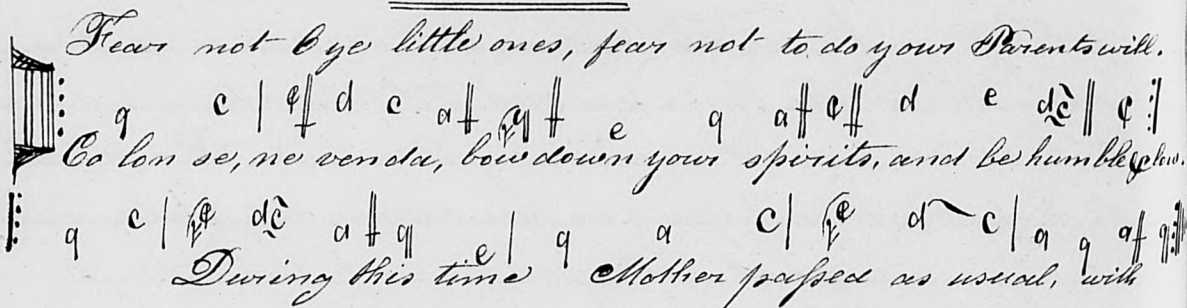 Fear not O ye little ones, fear not to do your Parents will.
q c | ¢ ‖ d c a ‖ q ‖ e q a ‖ ¢ ‖ d e dc ‖ ¢ :|
Co lon se, ne venda, bow down your spirits, and be humble & low.
q c | ¢ dc a ‖ q e | q a c | ¢ d c | q q a ‖ q :‖
During this time Mother paſsed as usual, with